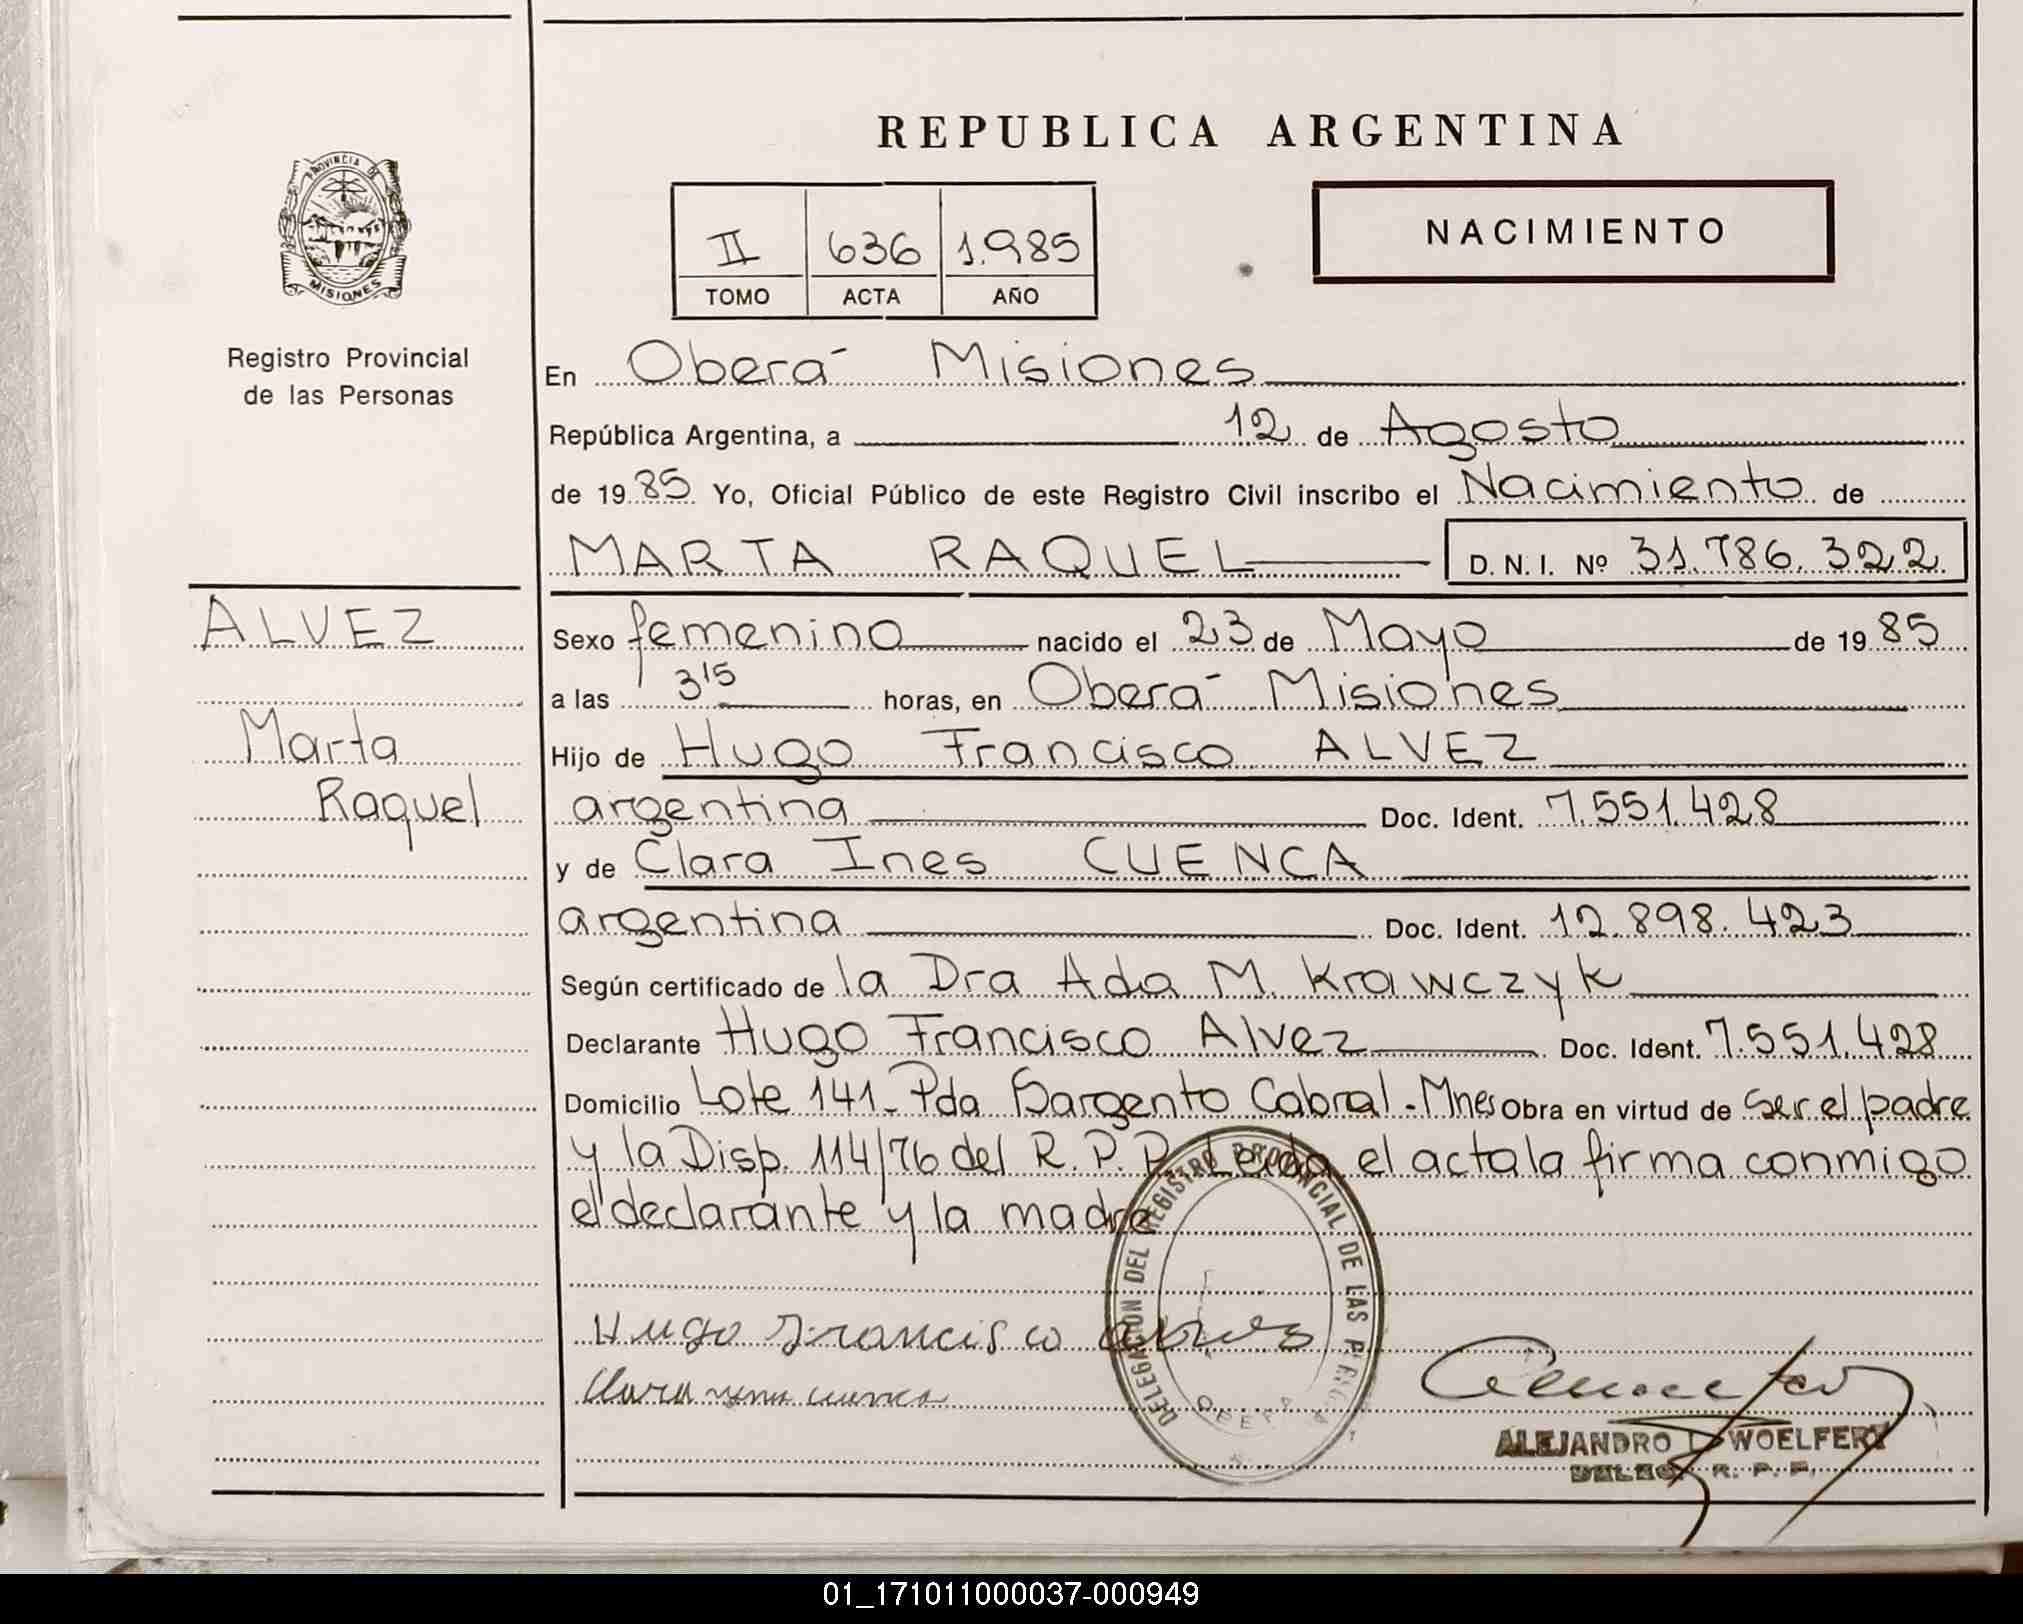 REPUBLICA ARGENTINA
PROVINCIA DE
MISIONES
Registro Provincial
de las Personas
II 636 1.985
TOMO ACTA AÑO
NACIMIENTO
En Oberá Misiones
República Argentina, a 12 de Agosto
de 19 85 Yo, Oficial Público de este Registro Civil inscribo el Nacimiento de
MARTA RAQUEL D. N. I. Nº 31.786.322
ALVEZ
Marta
Raquel
Sexo femenino nacido el 23 de Mayo de 19 85
a las 3'15 horas, en Oberá Misiones
Hijo de Hugo Francisco ALVEZ
argentina Doc. Ident. 7.551.428
y de Clara Ines CUENCA
argentina Doc. Ident. 12.898.423
Según certificado de la Dra Ada M. Krawczyk
Declarante Hugo Francisco Alvez Doc. Ident. 7.551.428
Domicilio Lote 141 - Pda Sargento Cabral - Mnes Obra en virtud de ser el padre
y la Disp. 114/76 del R. P. P. Leida el acta la firma conmigo
el declarante y la madre
DELEGACION DEL REGISTRO PROVINCIAL DE LAS
Hugo Francisco
Clara cuenca
ALEJANDRO L WOELFERT
DELEG R. P. P.
01_171011000037-000949